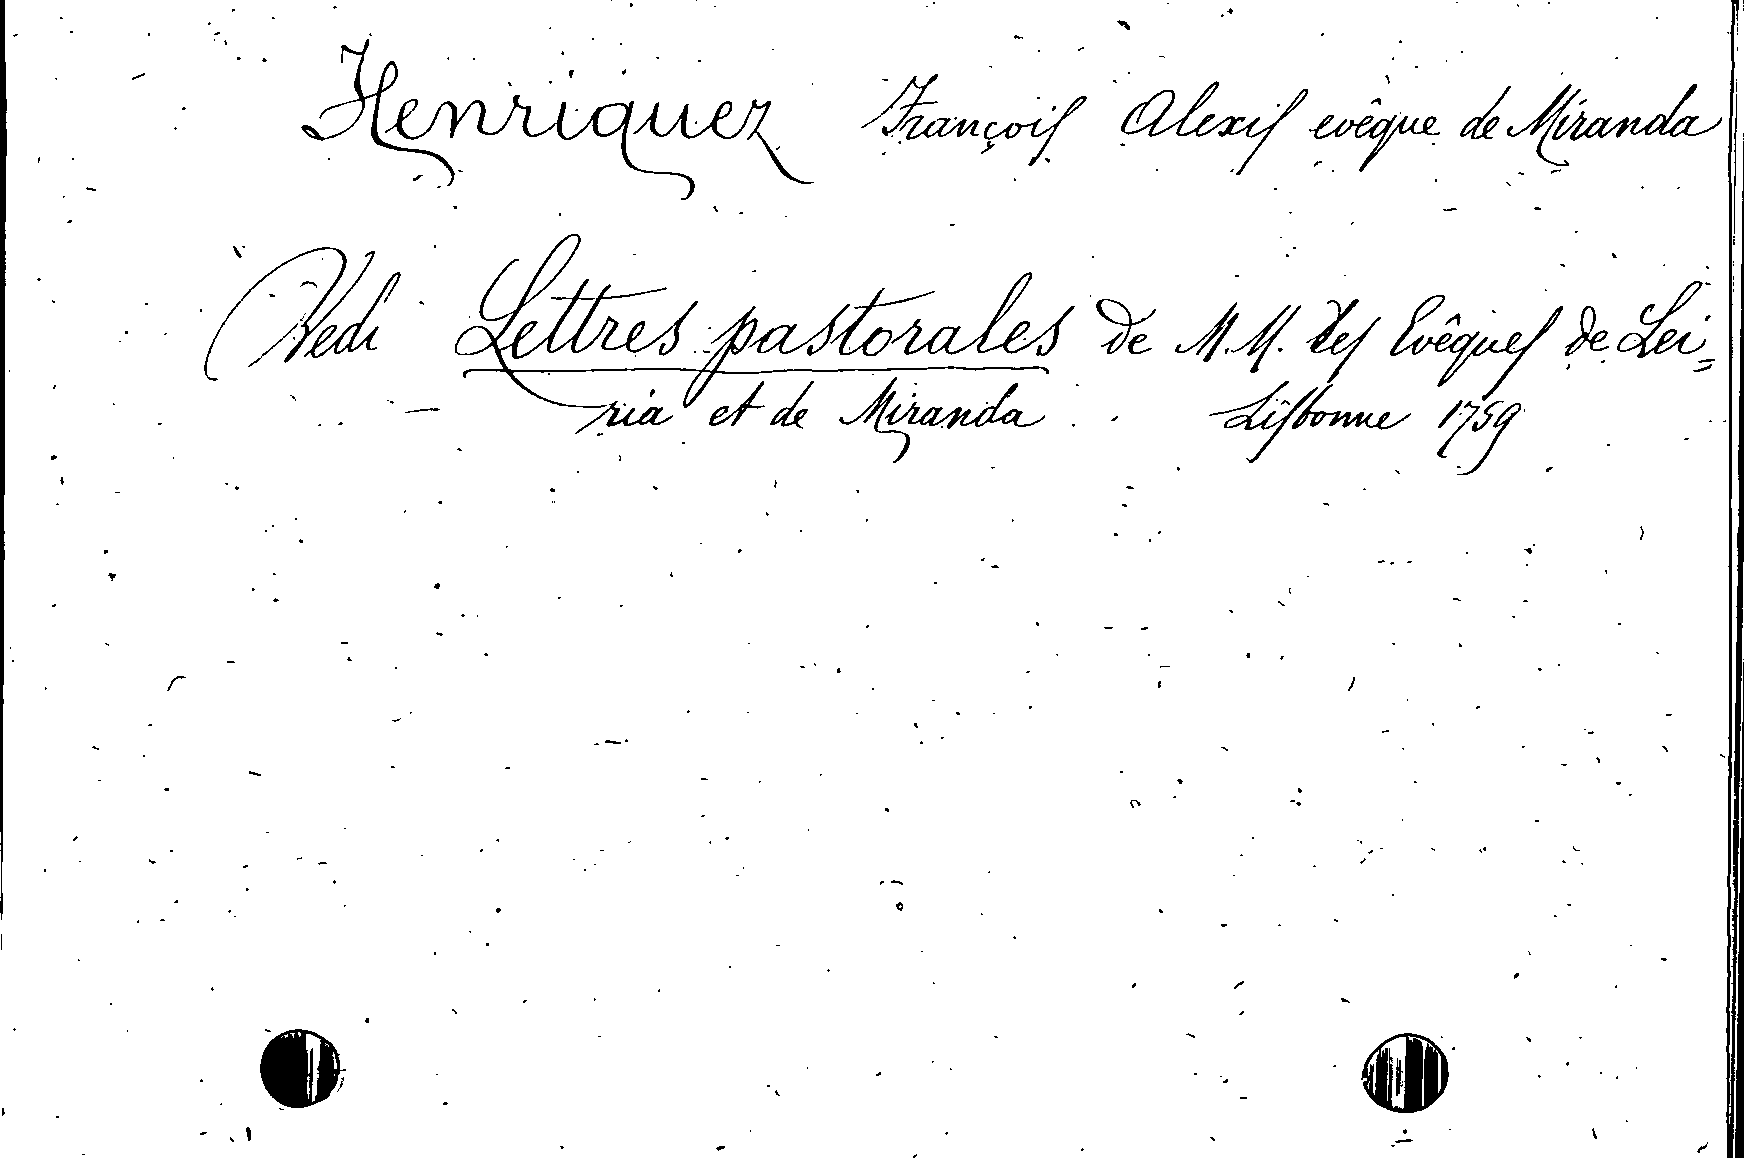 Henriquez François Alexis evêque de Miranda
Vedi Lettres pastorales de M.M. des Evêques de Lei=
ria et de Miranda . Lisbonne 1759